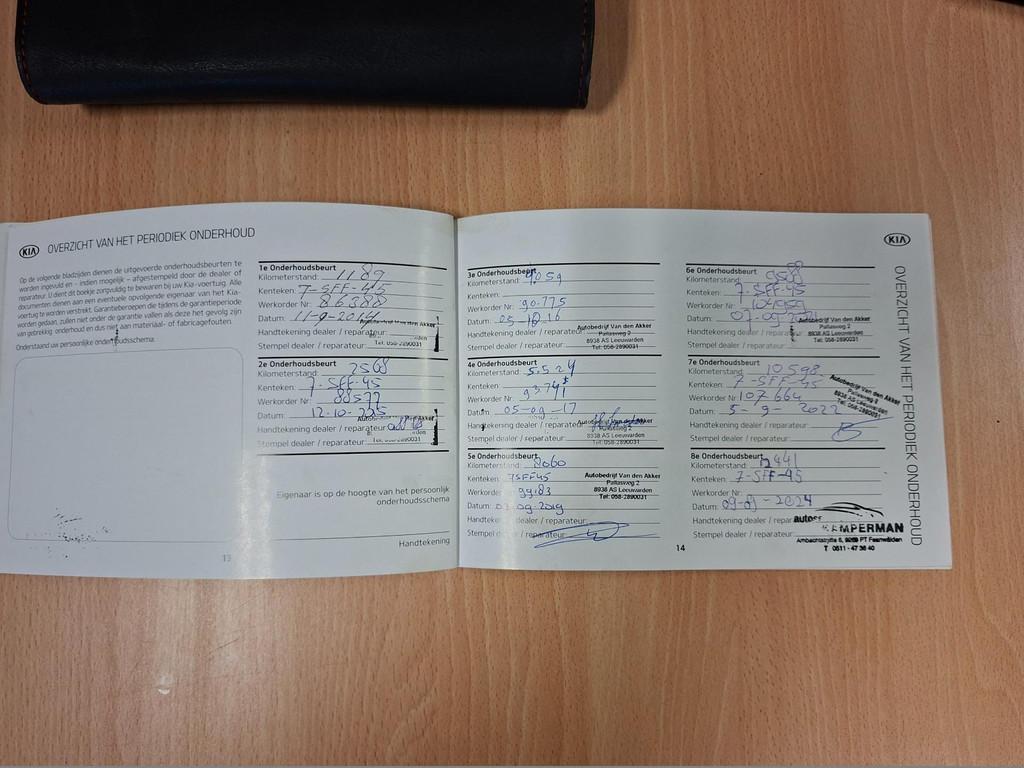 KIA OVERZICHT VAN HET PERIODIEK ONDERHOUD
Op de volgende bladzijden dienen de uitgevoerde onderhoudsbeurten te
worden ingevuld en - indien mogelijk – afgestempeld door de dealer of
reparateur. U dient dit boekje zorgvuldig te bewaren bij uw Kia-voertuig. Alle
documenten dienen aan een eventuele opvolgende eigenaar van het Kia-
voertuig te worden verstrekt. Garantieberoepen die tijdens de garantieperiode
worden gedaan, zullen niet onder de garantie vallen als deze het gevolg zijn
van gebrekkig onderhoud en dus niet aan materiaal- of fabricagefouten.
Onderstaand uw persoonlijke onderhoudsschema:
1e Onderhoudsbeurt
Kilometerstand: 1189
Kenteken: 7-SFF-45
Werkorder Nr: 86388
Datum: 11-9-2014
Handtekening dealer / reparateur:
Stempel dealer / reparateur:
Tel: 058-2890031
2e Onderhoudsbeurt
Kilometerstand: 2568
Kenteken: 7-SFF-45
Werkorder Nr: 88577
Datum: 12-10-
Handtekening dealer / reparateur:
Stempel dealer / reparateur:
Tel: 058-2890031
Eigenaar is op de hoogte van het persoonlijk
onderhoudsschema
Handtekening
13
3e Onderhoudsbeurt
Kilometerstand: 4059
Kenteken:
Werkorder Nr: 90775
Datum: 05 10 16
Handtekening dealer / reparateur:
Stempel dealer / reparateur:
Autobedrijf Van den Akker
Pallasweg 2
8938 AS Leeuwarden
Tel: 058-2890031
4e Onderhoudsbeurt
Kilometerstand: 5524
Kenteken:
Werkorder Nr: 93741
Datum: 05-09-17
Handtekening dealer / reparateur:
Stempel dealer / reparateur:
Pallasweg 2
8938 AS Leeuwarden
Tel: 058-2890031
5e Onderhoudsbeurt
Kilometerstand: 8060
Kenteken: 7SFF45
Werkorder 99.83
Datum: 03.09.2019
Handtekening dealer / reparateur:
Stempel dealer / reparateur:
Autobedrijf Van den Akker
Pallasweg 2
8938 AS Leeuwarden
Tel: 058-2890031
14
KIA
OVERZICHT VAN HET PERIODIEK ONDERHOUD
6e Onderhoudsbeurt
Kilometerstand: 9588
Kenteken: 7-SFF-45
Werkorder Nr: 104959
Datum: 07-09-
Handtekening dealer /
Stempel dealer / reparateur:
Autobedrijf Van den Akker
Pallasweg 2
8938 AS Leeuwarden
Tel: 058-2890031
7e Onderhoudsbeurt
Kilometerstand: 10598
Kenteken: 7-SFF-45
Werkorder Nr: 107664
Datum: 5-9-2022
Handtekening dealer / reparateur:
Stempel dealer / reparateur:
Autobedrijf Van den Akker
Pallasweg 2
8938 AS Leeuwarden
Tel: 058-2890031
8e Onderhoudsbeurt
Kilometerstand: 12441
Kenteken: 7-SFF-45
Werkorder Nr:
Datum: 09-09-2024
Handtekening dealer / reparateur:
Stempel dealer / reparateur:
KEMPERMAN
Ambachtsstrjitte 6, 9269 PT Feanwâlden
T 0511 - 47 36 40